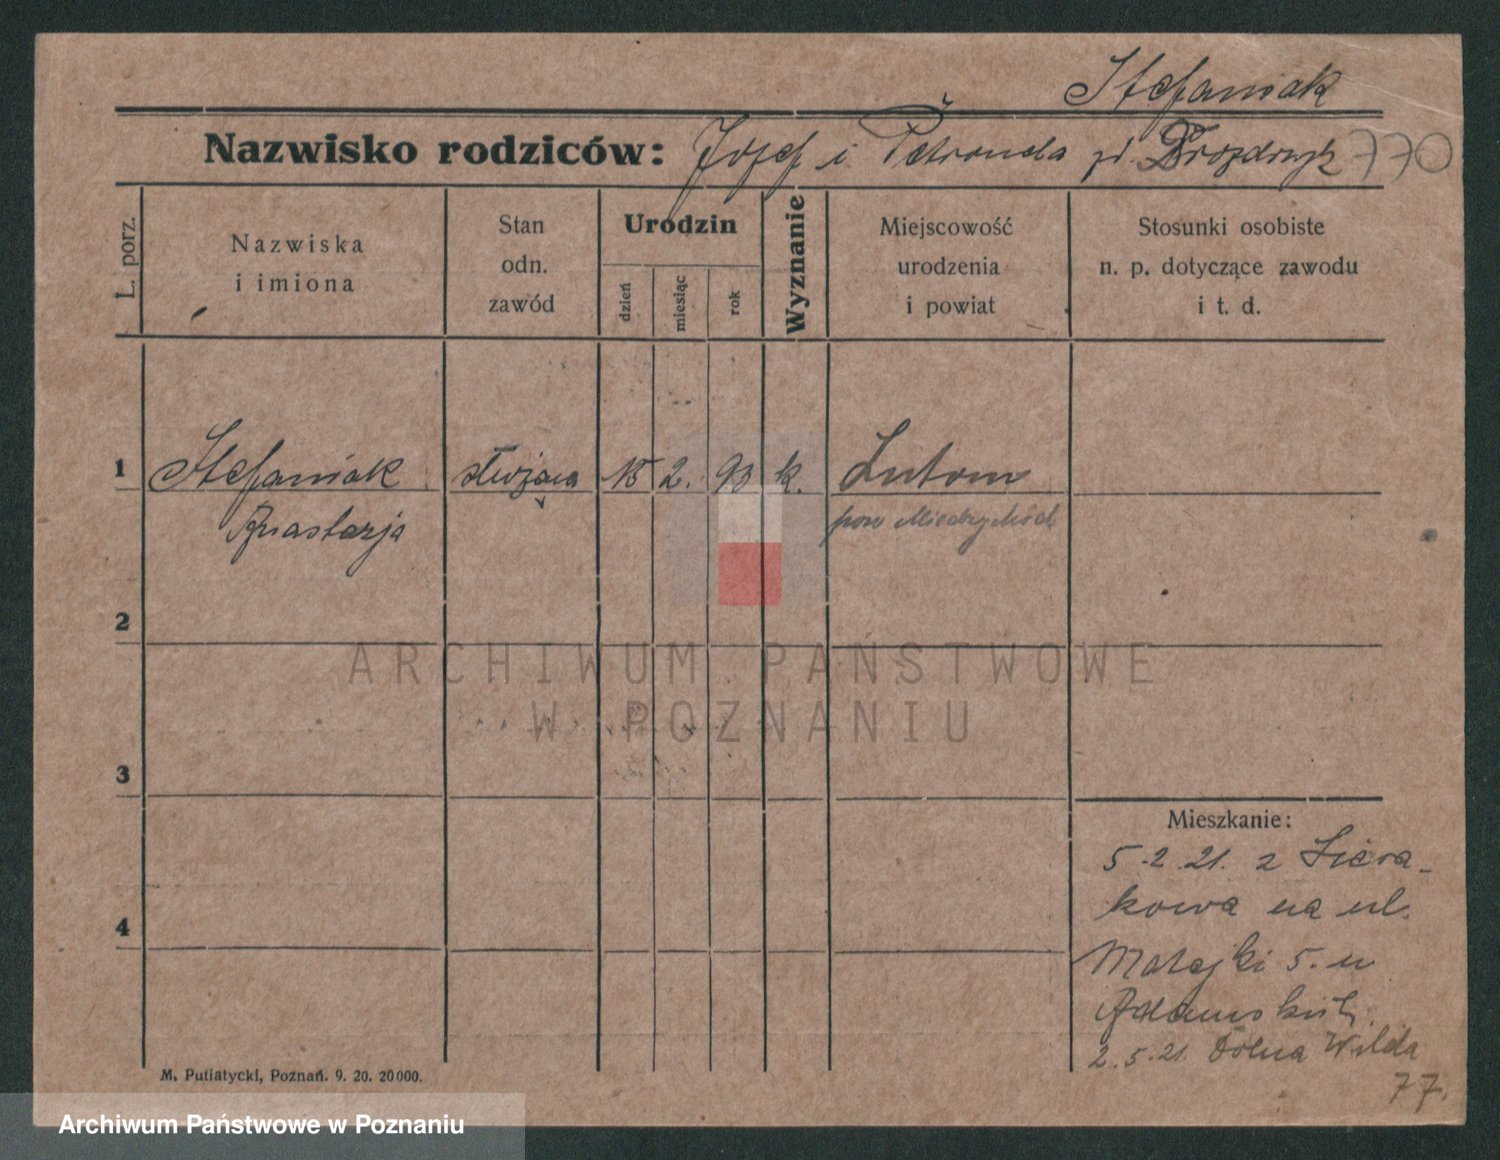 Stefaniak
Nazwisko rodziców: Józef i Petronela zd. Drozdrzyk 770
L. porz.
Nazwiska
i imiona
Stan
odn.
zawód
Urodzin
dzień
miesiąc
rok
Wyznanie
Miejscowość
urodzenia
i powiat
Stosunki osobiste
n. p. dotyczące zawodu
i t. d.
1 Stefaniak służąca 15 2. 93 k. Lutom
Anastazja pow Międzychód
2
3
4
Mieszkanie:
5.2.21. z Siera-
kowa na ul.
Matejki 5. u
2.5.21. Dolna Wilda
77.
M. Putiatycki, Poznań. 9. 20. 20000.
ARCHIWUM PAŃSTWOWE
W POZNANIU
Archiwum Państwowe w Poznaniu